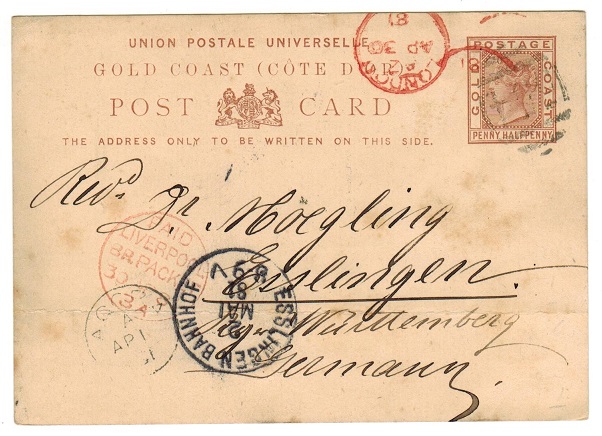 UNION POSTALE UNIVERSELLE
GOLD COAST (CÔTE D'OR)
POST CARD
THE ADDRESS ONLY TO BE WRITTEN ON THIS SIDE.
LONDON
AP 30
81
POSTAGE
GOLD COAST
PENNY HALFPENNY
Revd Dr. Moegling
Esslingen
Württemberg
Germany
PAID
LIVERPOOL
BR PACKET
3A
AP 1
ESSLINGEN BAHNHOF
2
MAI